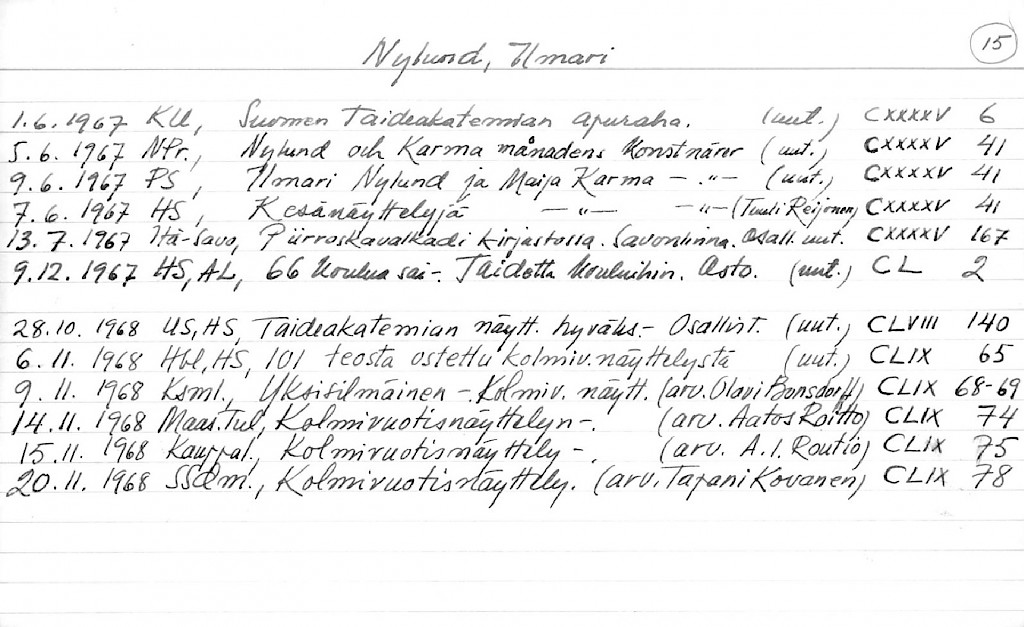 15
Nylund, Ilmari
1.6.1967 KU, Suomen Taideakatemian apuraha. (uut.) CXXXXV 6
5.6.1967 NPr., Nylund och Karma månadens konstnärer (uut.) CXXXXV 41
9.6.1967 PS, Ilmari Nylund ja Maija Karma -"- (uut.) CXXXXV 41
7.6.1967 HS, Kesänäyttelyjä -"- -"- (Tuuli Reijonen) CXXXXV 41
13.7.1967 Itä-Savo, Piirroskavalkadi kirjastossa. Savonlinna. Osall. uut. CXXXXV 167
9.12.1967 HS, AL, 66 koulua sai-. Taidetta kouluihin. Osto. (uut.) CL 2
28.10.1968 US, HS, Taideakatemian näytt. hyväks.- Osallist. (uut.) CLVIII 140
6.11.1968 Hbl, HS, 101 teosta ostettu kolmiv.näyttelystä (uut.) CLIX 65
9.11.1968 Ksml., Yksisilmäinen - Kolmiv. näytt. (arv. Olavi Bonsdorff) CLIX 68-69
14.11.1968 Maas.Tul, Kolmivuotisnäyttelyn-. (arv. Aatos Roitto) CLIX 74
15.11.1968 Kauppal., Kolmivuotisnäyttely-. (arv. A.I. Routio) CLIX 75
20.11.1968 SSdm., Kolmivuotisnäyttely. (arv. Tapani Kovanen) CLIX 78